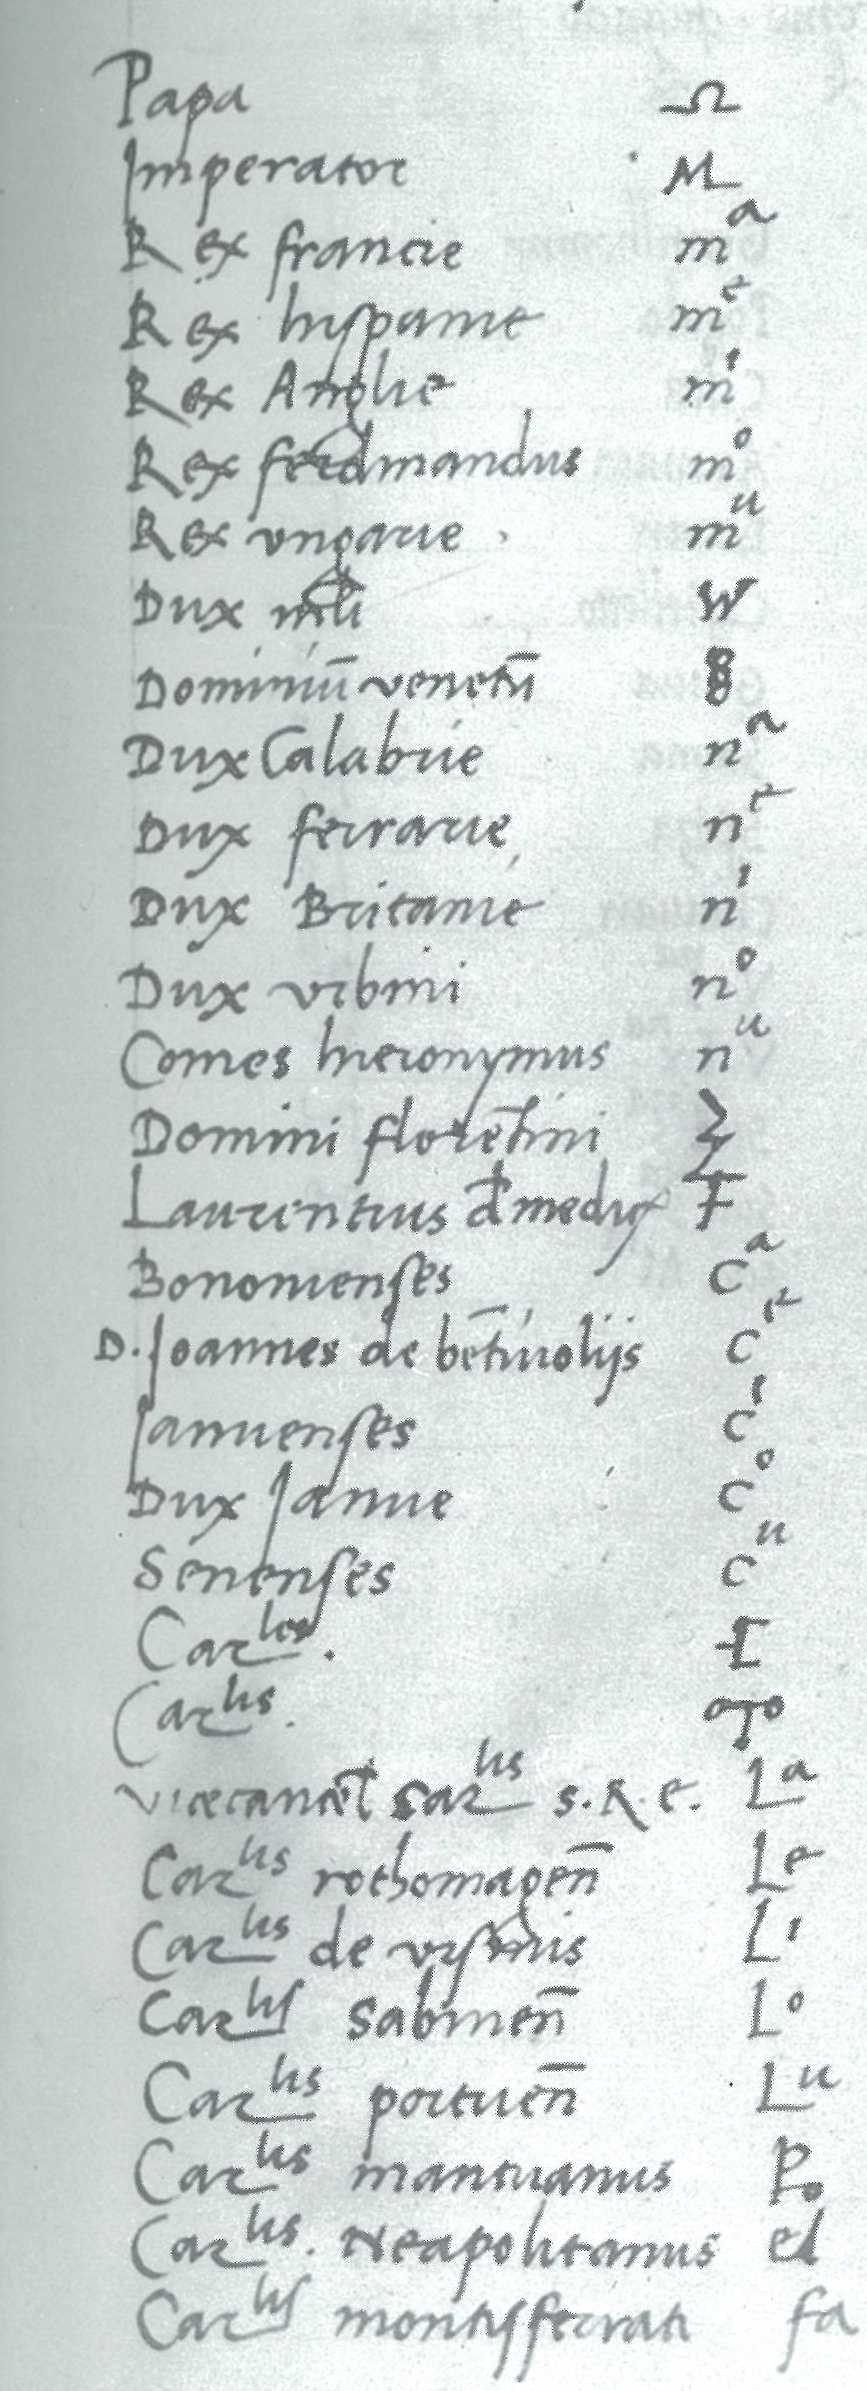 Papa Ω
Imperator M
Rex francie mᵃ
Rex hispanie mᵉ
Rex Anglie mⁱ
Rex ferdinandus mᵒ
Rex ungarie mᵘ
Dux mli W
Dominiū venetū 8
Dux Calabrie nᵃ
Dux ferrarie nᵉ
Dux Britanie nⁱ
Dux urbini nᵒ
Comes hieronymus nᵘ
Domini florētini
Laurentius d medicis F
Bononienses cᵃ
D. Joannes de bētivolijs cᵉ
Januenses cⁱ
Dux Janue cᵒ
Senenses cᵘ
Carˡᵉˢ.
Carˡⁱˢ.
vicecancel Carˡⁱˢ S. R. e. Lᵃ
Carˡⁱˢ rothomagen̄ Lᵉ
Carˡⁱˢ de ursinis Lⁱ
Carˡⁱˢ Sabinen̄ Lᵒ
Carˡⁱˢ portuen̄ Lᵘ
Carˡⁱˢ mantuanus Po
Carˡⁱˢ. Neapolitanus el
Carˡⁱˢ montisferrati fa